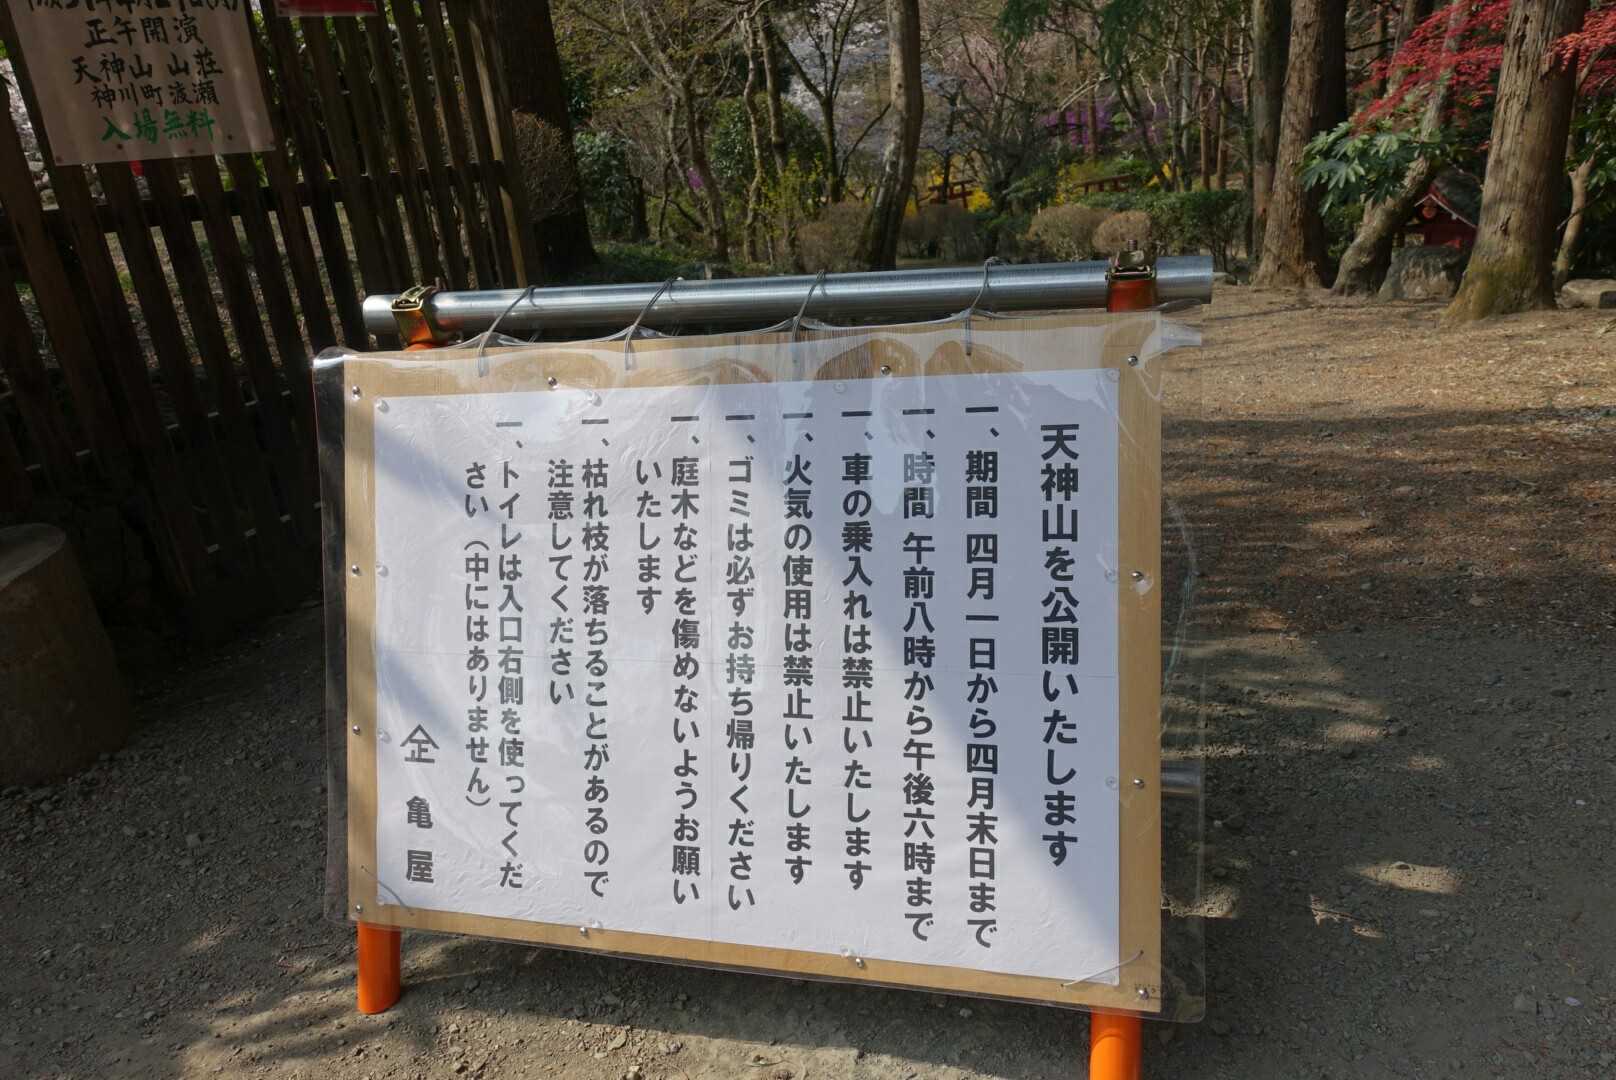 正午開演
天神山 山荘
神川町渡瀬
入場無料
天神山を公開いたします
一、期間 四月一日から四月末日まで
一、時間 午前八時から午後六時まで
一、車の乗入れは禁止いたします
一、火気の使用は禁止いたします
一、ゴミは必ずお持ち帰りください
一、庭木などを傷めないようお願い
いたします
一、枯れ枝が落ちることがあるので
注意してください
一、トイレは入口右側を使ってくだ
さい（中にはありません）
正 亀屋